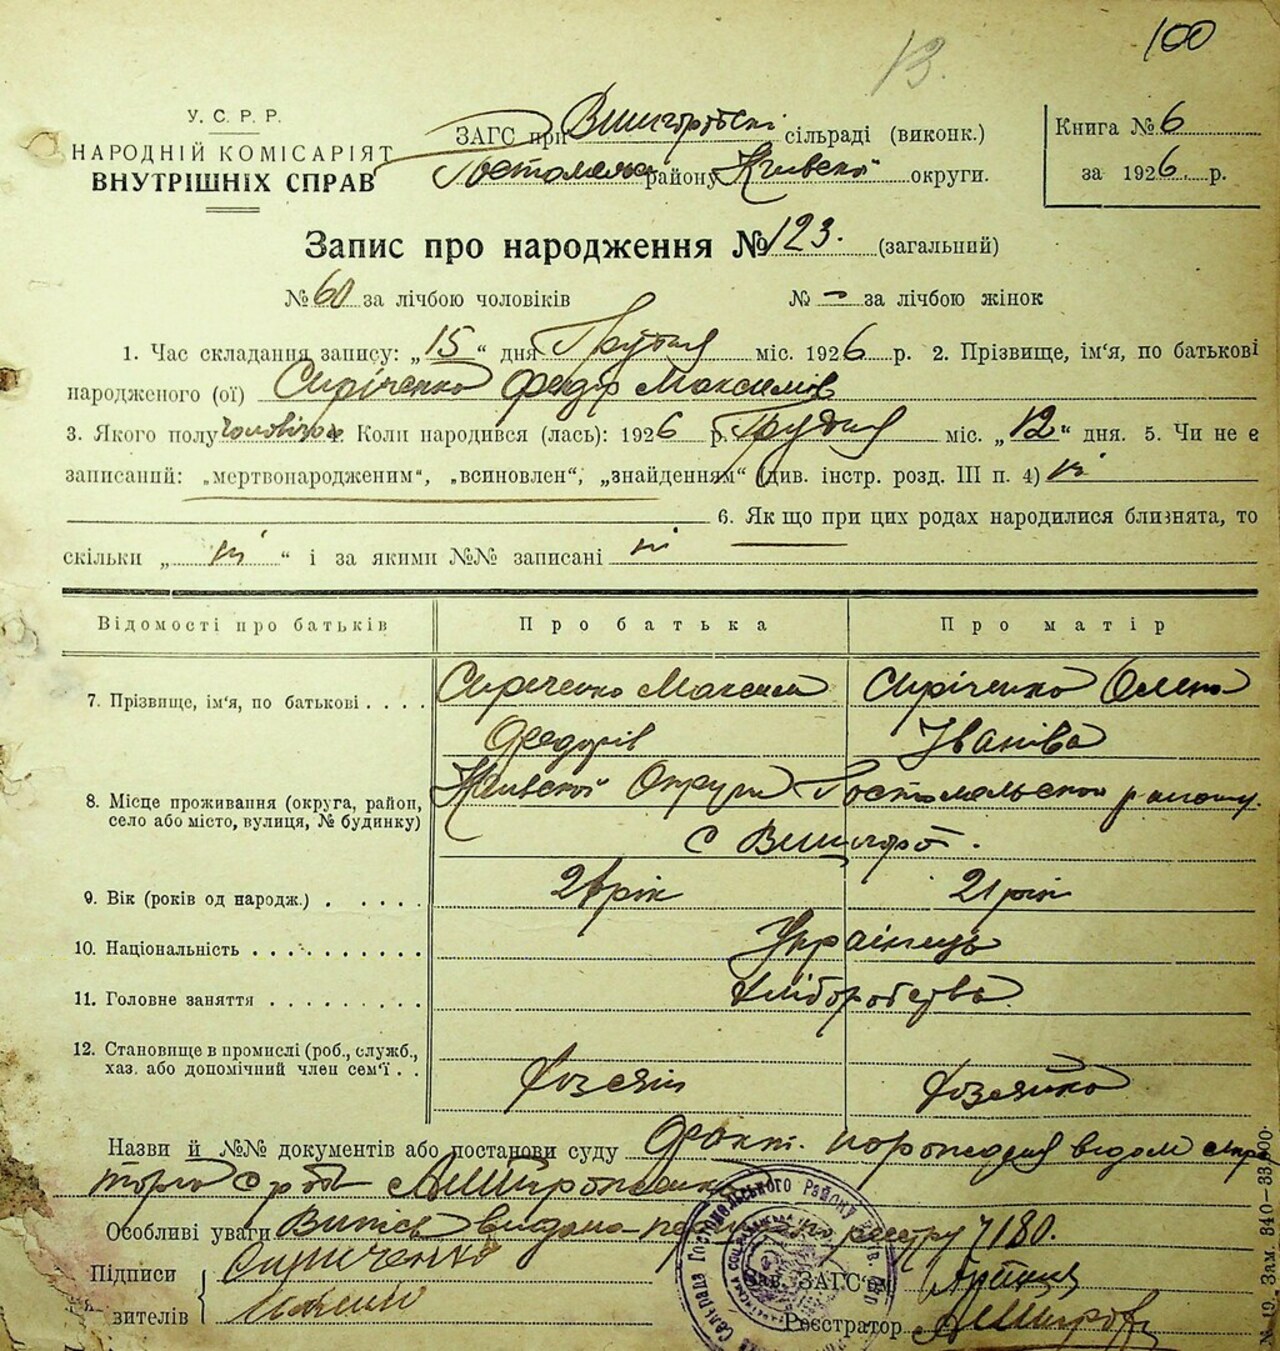 100
13.
У. С. Р. Р.
НАРОДНІЙ КОМІСАРІЯТ
ВНУТРІШНІХ СПРАВ
ЗАГС при Вишгородскі сільраді (виконк.)
району Київскої округи.
Книга № 6
за 1926 р.
Запис про народження № 123. (загальний)
№ 60 за лічбою чоловіків № — за лічбою жінок
1. Час складання запису: „15“ дня Грудня міс. 1926 р. 2. Прізвище, ім'я, по батькові
народженого (ої) Сиріченко Федір Максимів
3. Якого полу 4. Коли народився (лась): 1926 р. Грудня міс. „12“ дня. 5. Чи не є
записаний: „мертвонародженим“, „всиновлен“, „знайденням“ (див. інстр. розд. III п. 4) ні
6. Як що при цих родах народилися близнята, то
скільки „ ні “ і за якими №№ записані ні
Відомості про батьків Про батька Про матір
7. Прізвище, ім'я, по батькові . . . . Сиріченко Максим Сиріченко Олена
Федорів Іваніва
8. Місце проживання (округа, район, село або місто, вулиця, № будинку) Київскої Округи Гостомельского району.
с Вишгород.
9. Вік (років од народж.) . . . . . рік 21 рік
10. Національність . . . . . . . . . . Українець
11. Головне заняття . . . . . . . . . Хліборобства
12. Становище в промислі (роб., служб.,
хаз. або допомічний член сем'ї . . Хозяїн Хозяйка
Назви й №№ документів або постанови суду Факт.
Особливі уваги видано реєстру 7180.
Підписи Сириченко
зителів
Зав. ЗАГС'ом
Реєстратор
Гостомельського Району
№ 19. Зам. 840—33.000.